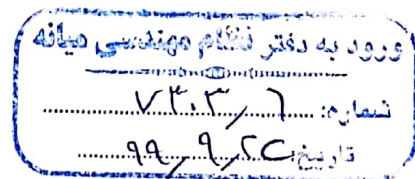 ورود به دفتر نظام مهندسی میانه
شماره: ۷۳۰۳٫۶
تاریخ: ۹۹٫۹٫۲۲